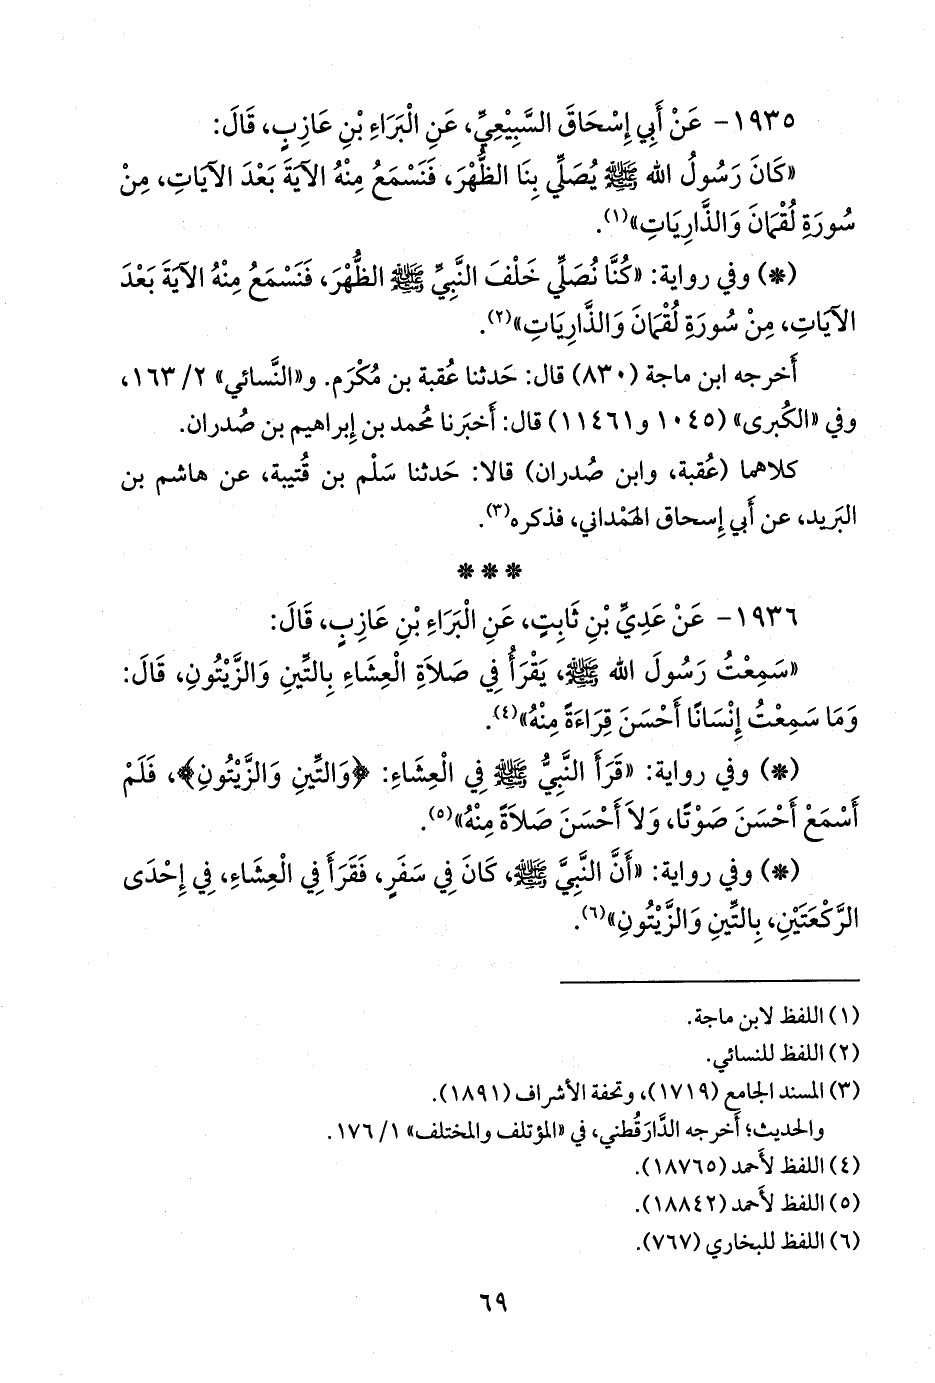 ١٩٣٥- عَنْ أَبِي إِسْحَاقَ السَّبِيْعِيِّ، عَنِ الْبَرَاءِ بْنِ عَازِبٍ، قَالَ:
«كَانَ رَسُولُ الله ﷺ يُصَلِّي بِنَا الظُّهْرَ، فَنَسْمَعُ مِنْهُ الآيَةَ بَعْدَ الآيَاتِ، مِنْ
سُورَةِ لُقْمَانَ وَالذَّارِيَاتِ»(١).
(*) وفي رواية: «كُنَّا نُصَلِّي خَلْفَ النَّبِيِّ ﷺ الظُّهْرَ، فَنَسْمَعُ مِنْهُ الآيَةَ بَعْدَ
الآيَاتِ، مِنْ سُورَةِ لُقْمَانَ وَالذَّارِيَاتِ»(٢).
أَخرجه ابن ماجة (٨٣٠) قال: حَدثنا عُقبة بن مُكْرَم. و«النَّسائي» ٢/ ١٦٣،
وفي «الكُبرى» (١٠٤٥ و١١٤٦١) قال: أَخبَرنا مُحمد بن إِبراهيم بن صُدران.
كلاهما (عُقبة، وابن صُدران) قالا: حَدثنا سَلْم بن قُتيبة، عن هاشم بن
البَريد، عن أَبي إِسحاق الهَمْداني، فذكره(٣).
* * *
١٩٣٦- عَنْ عَدِيِّ بْنِ ثَابِتٍ، عَنِ الْبَرَاءِ بْنِ عَازِبٍ، قَالَ:
«سَمِعْتُ رَسُولَ الله ﷺ، يَقْرَأُ فِي صَلاَةِ الْعِشَاءِ بِالتِّينِ وَالزَّيْتُونِ، قَالَ:
وَمَا سَمِعْتُ إِنْسَانًا أَحْسَنَ قِرَاءَةً مِنْهُ»(٤).
(*) وفي رواية: «قَرَأَ النَّبِيُّ ﷺ فِي الْعِشَاءِ: ﴿وَالتِّينِ وَالزَّيْتُونِ﴾، فَلَمْ
أَسْمَعْ أَحْسَنَ صَوْتًا، وَلاَ أَحْسَنَ صَلاَةً مِنْهُ»(٥).
(*) وفي رواية: «أَنَّ النَّبِيَّ ﷺ، كَانَ فِي سَفَرٍ، فَقَرَأَ فِي الْعِشَاءِ، فِي إِحْدَى
الرَّكْعَتَيْنِ، بِالتِّينِ وَالزَّيْتُونِ»(٦).
(١) اللفظ لابن ماجة.
(٢) اللفظ للنسائي.
(٣) المسند الجامع (١٧١٩)، وتحفة الأشراف (١٨٩١).
والحديث؛ أَخرجه الدَّارَقُطني، في «المؤتلف والمختلف» ١/ ١٧٦.
(٤) اللفظ لأَحمد (١٨٧٦٥).
(٥) اللفظ لأَحمد (١٨٨٤٢).
(٦) اللفظ للبخاري (٧٦٧).
٦٩